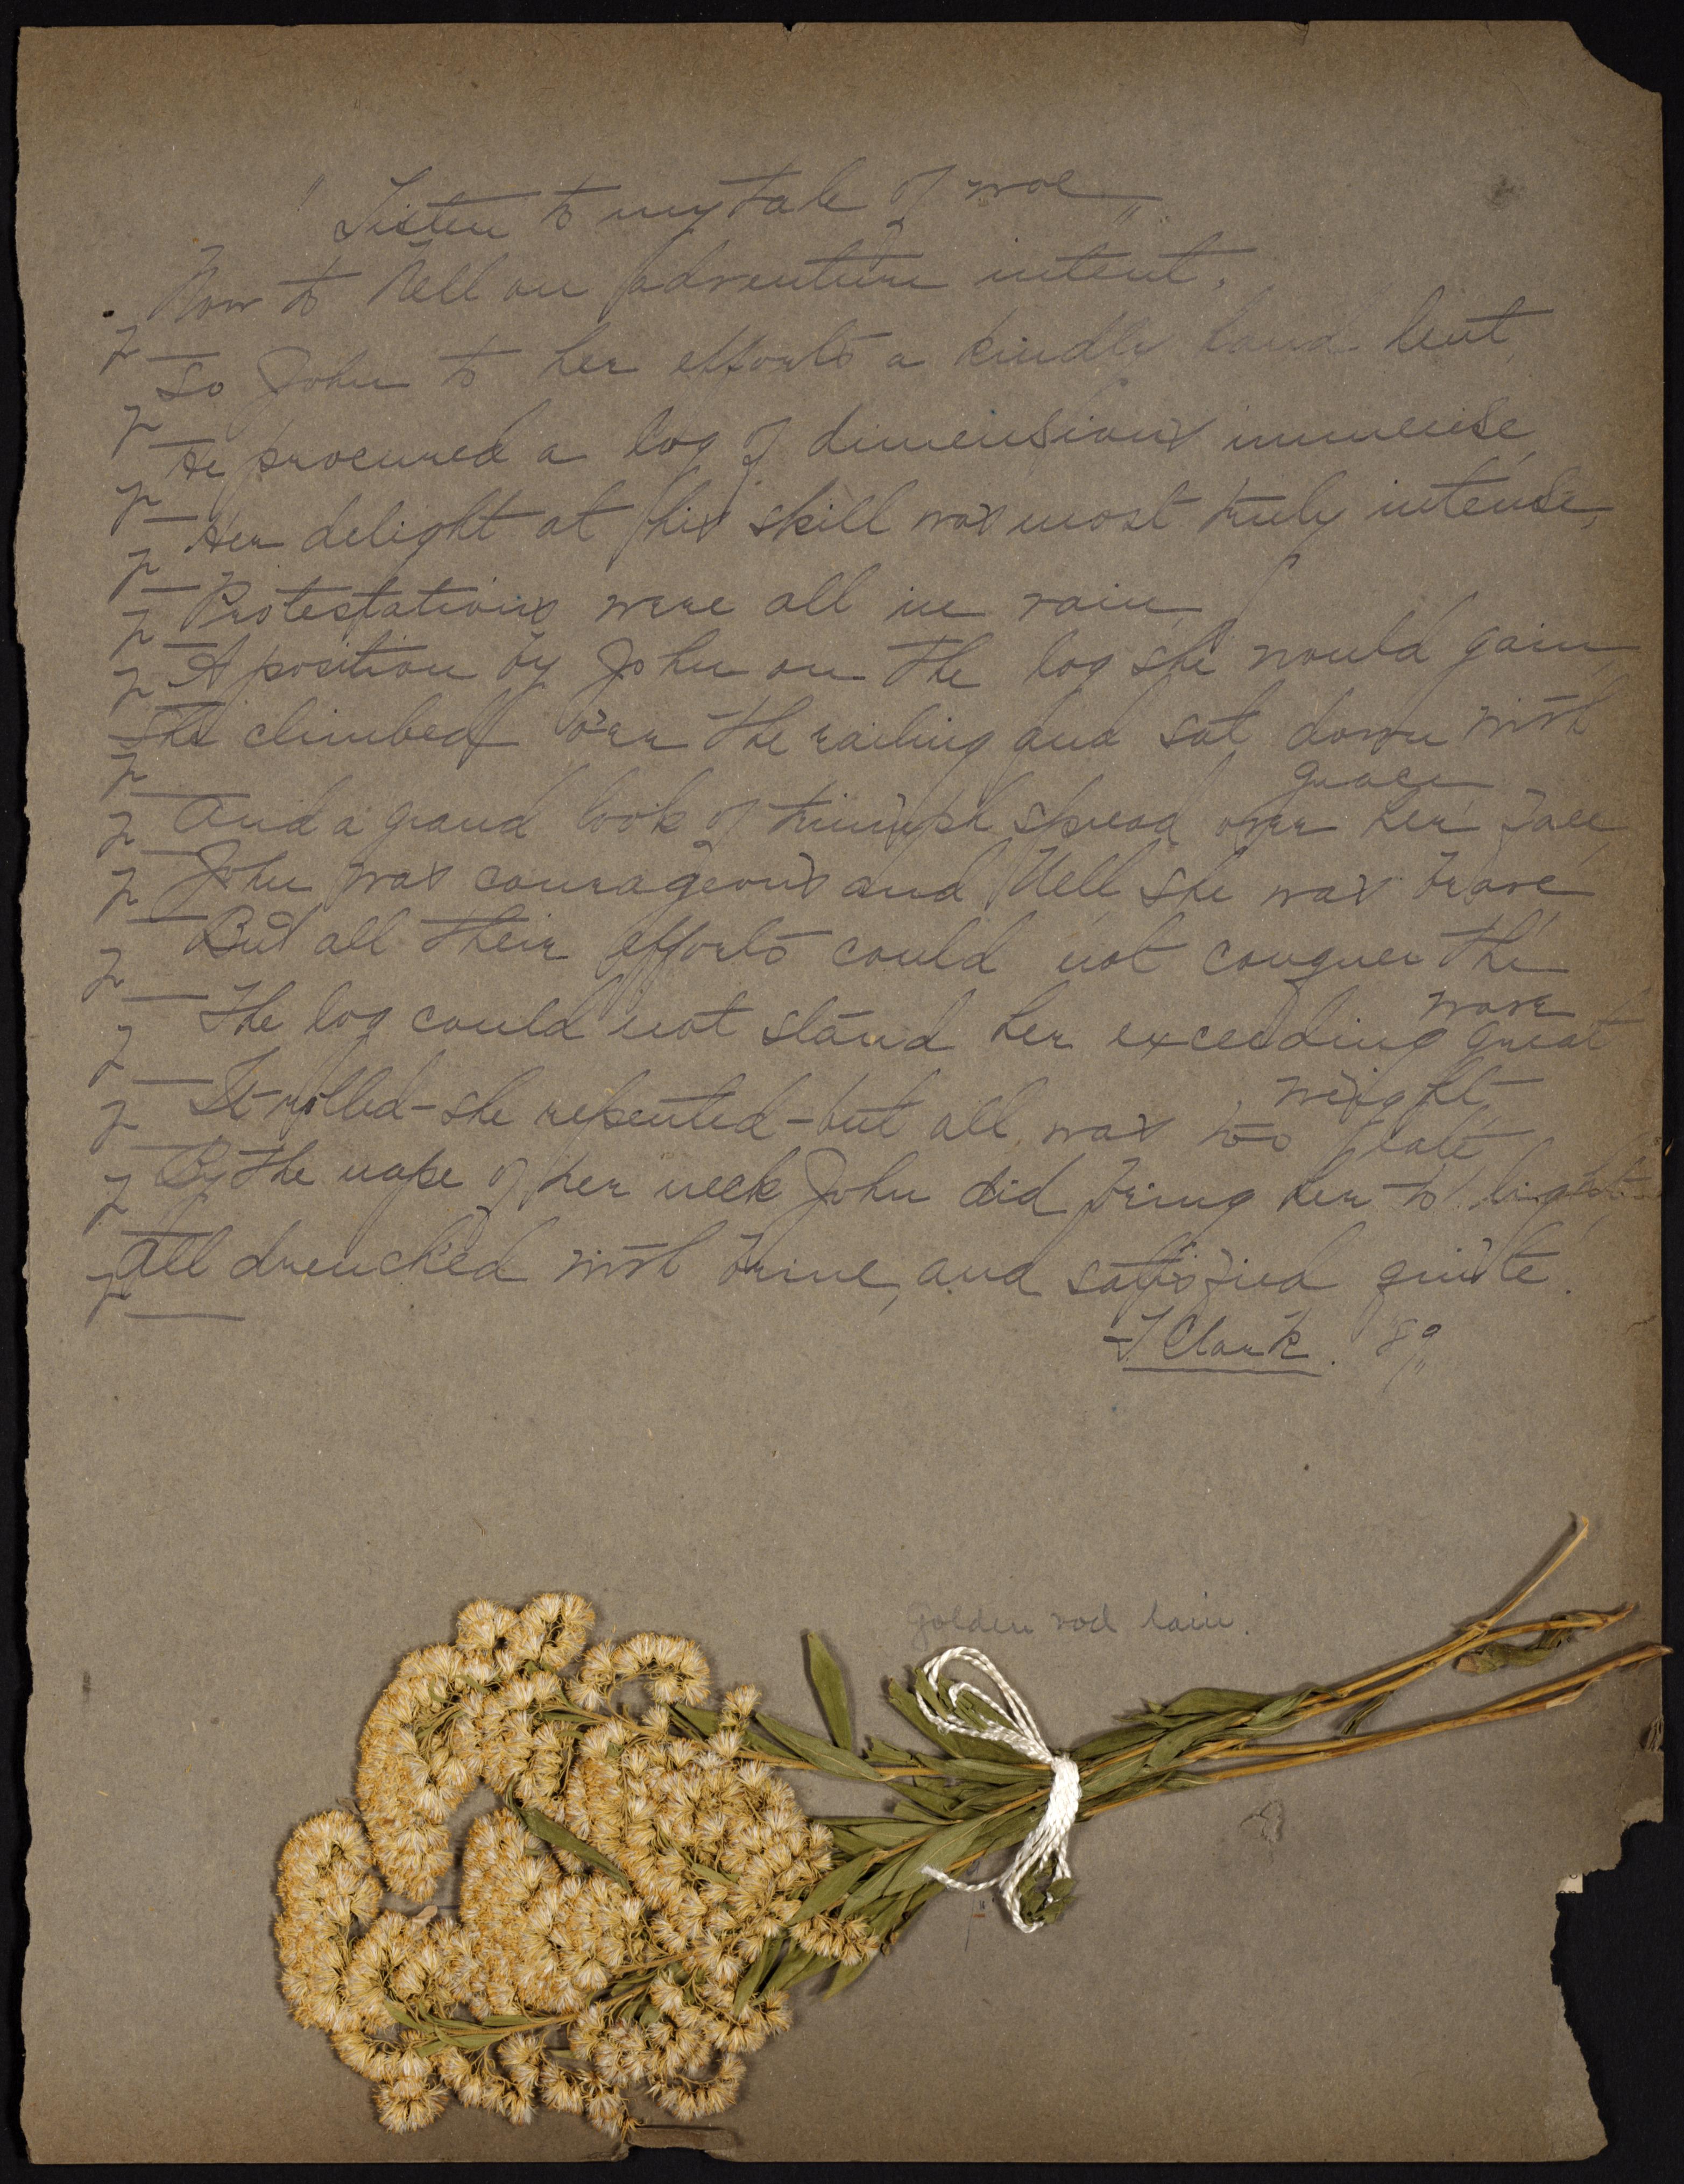 "Listen to my tale of woe"
Now to Nell on adventure intent,
So John to her efforts a kindly hand lent,
He procured a log of dimensions immense,
Her delight at his skill was most truly intense,
Protestations were all in vain,
A position by John on the log she would gain,
She climbed o'er the railing and sat down with
grace,
And a grand look of triumph spread over her face,
John was courageous and Nell she was brave
But all their efforts could not conquer the
wave
The log could not stand her exceeding great
weight,
It rolled - she repented - but all was too late,
By the nape of her neck John did bring her to light
All drenched with brine, and satisfied quite.
Clark. 89"
Golden rod